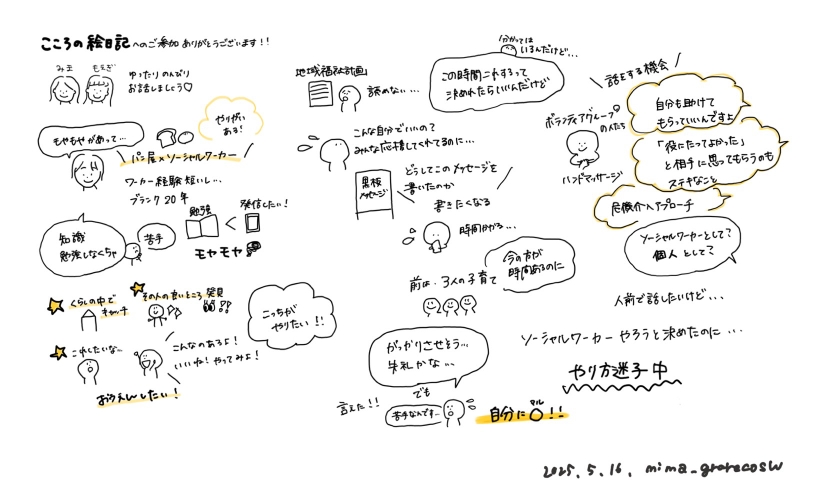 こころの絵日記 へのご参加 ありがとうございます!!
みま
もえぎ
ゆったり のんびり
お話しましょう♡
もやもやがあって…
やりがい
ある!
パン屋×ソーシャルワーカー
ワーカー経験短いし…
ブランク20年
知識
勉強しなくちゃ
苦手
勉強
<
発信したい!
モヤモヤ
くらしの中で
キャッチ
その人の良いところ 発見
!!
こっちが
やりたい!!
こんなのあるよ!
いいね!やってみよ!
おうえんしたい!
地域福祉計画
読めない…
分かっては
いるんだけど…
この時間これするって
決めれたらいいんだけど
こんな自分でいいの?
みんな応援してくれてるのに…
黒板
メッセージ
どうしてこのメッセージを
書いたのか
書きたくなる
時間かかる…
今の方が
時間あるのに
前は、3人の子育て
がっかりさせそう…
失礼かな…
でも
言えた!!
苦手なんです…
マル
自分に〇!!
話をする機会
ボランティアグループ
の人たち
ハンドマッサージ
自分も助けて
もらっていいんですよ
「役にたってよかった」
と相手に思ってもらうのも
ステキなこと
危機介入アプローチ
ソーシャルワーカーとして?
個人として?
人前で話したいけど…
ソーシャルワーカー やろうと決めたのに…
やり方迷子中
2025.5.16. mima_grarecosw